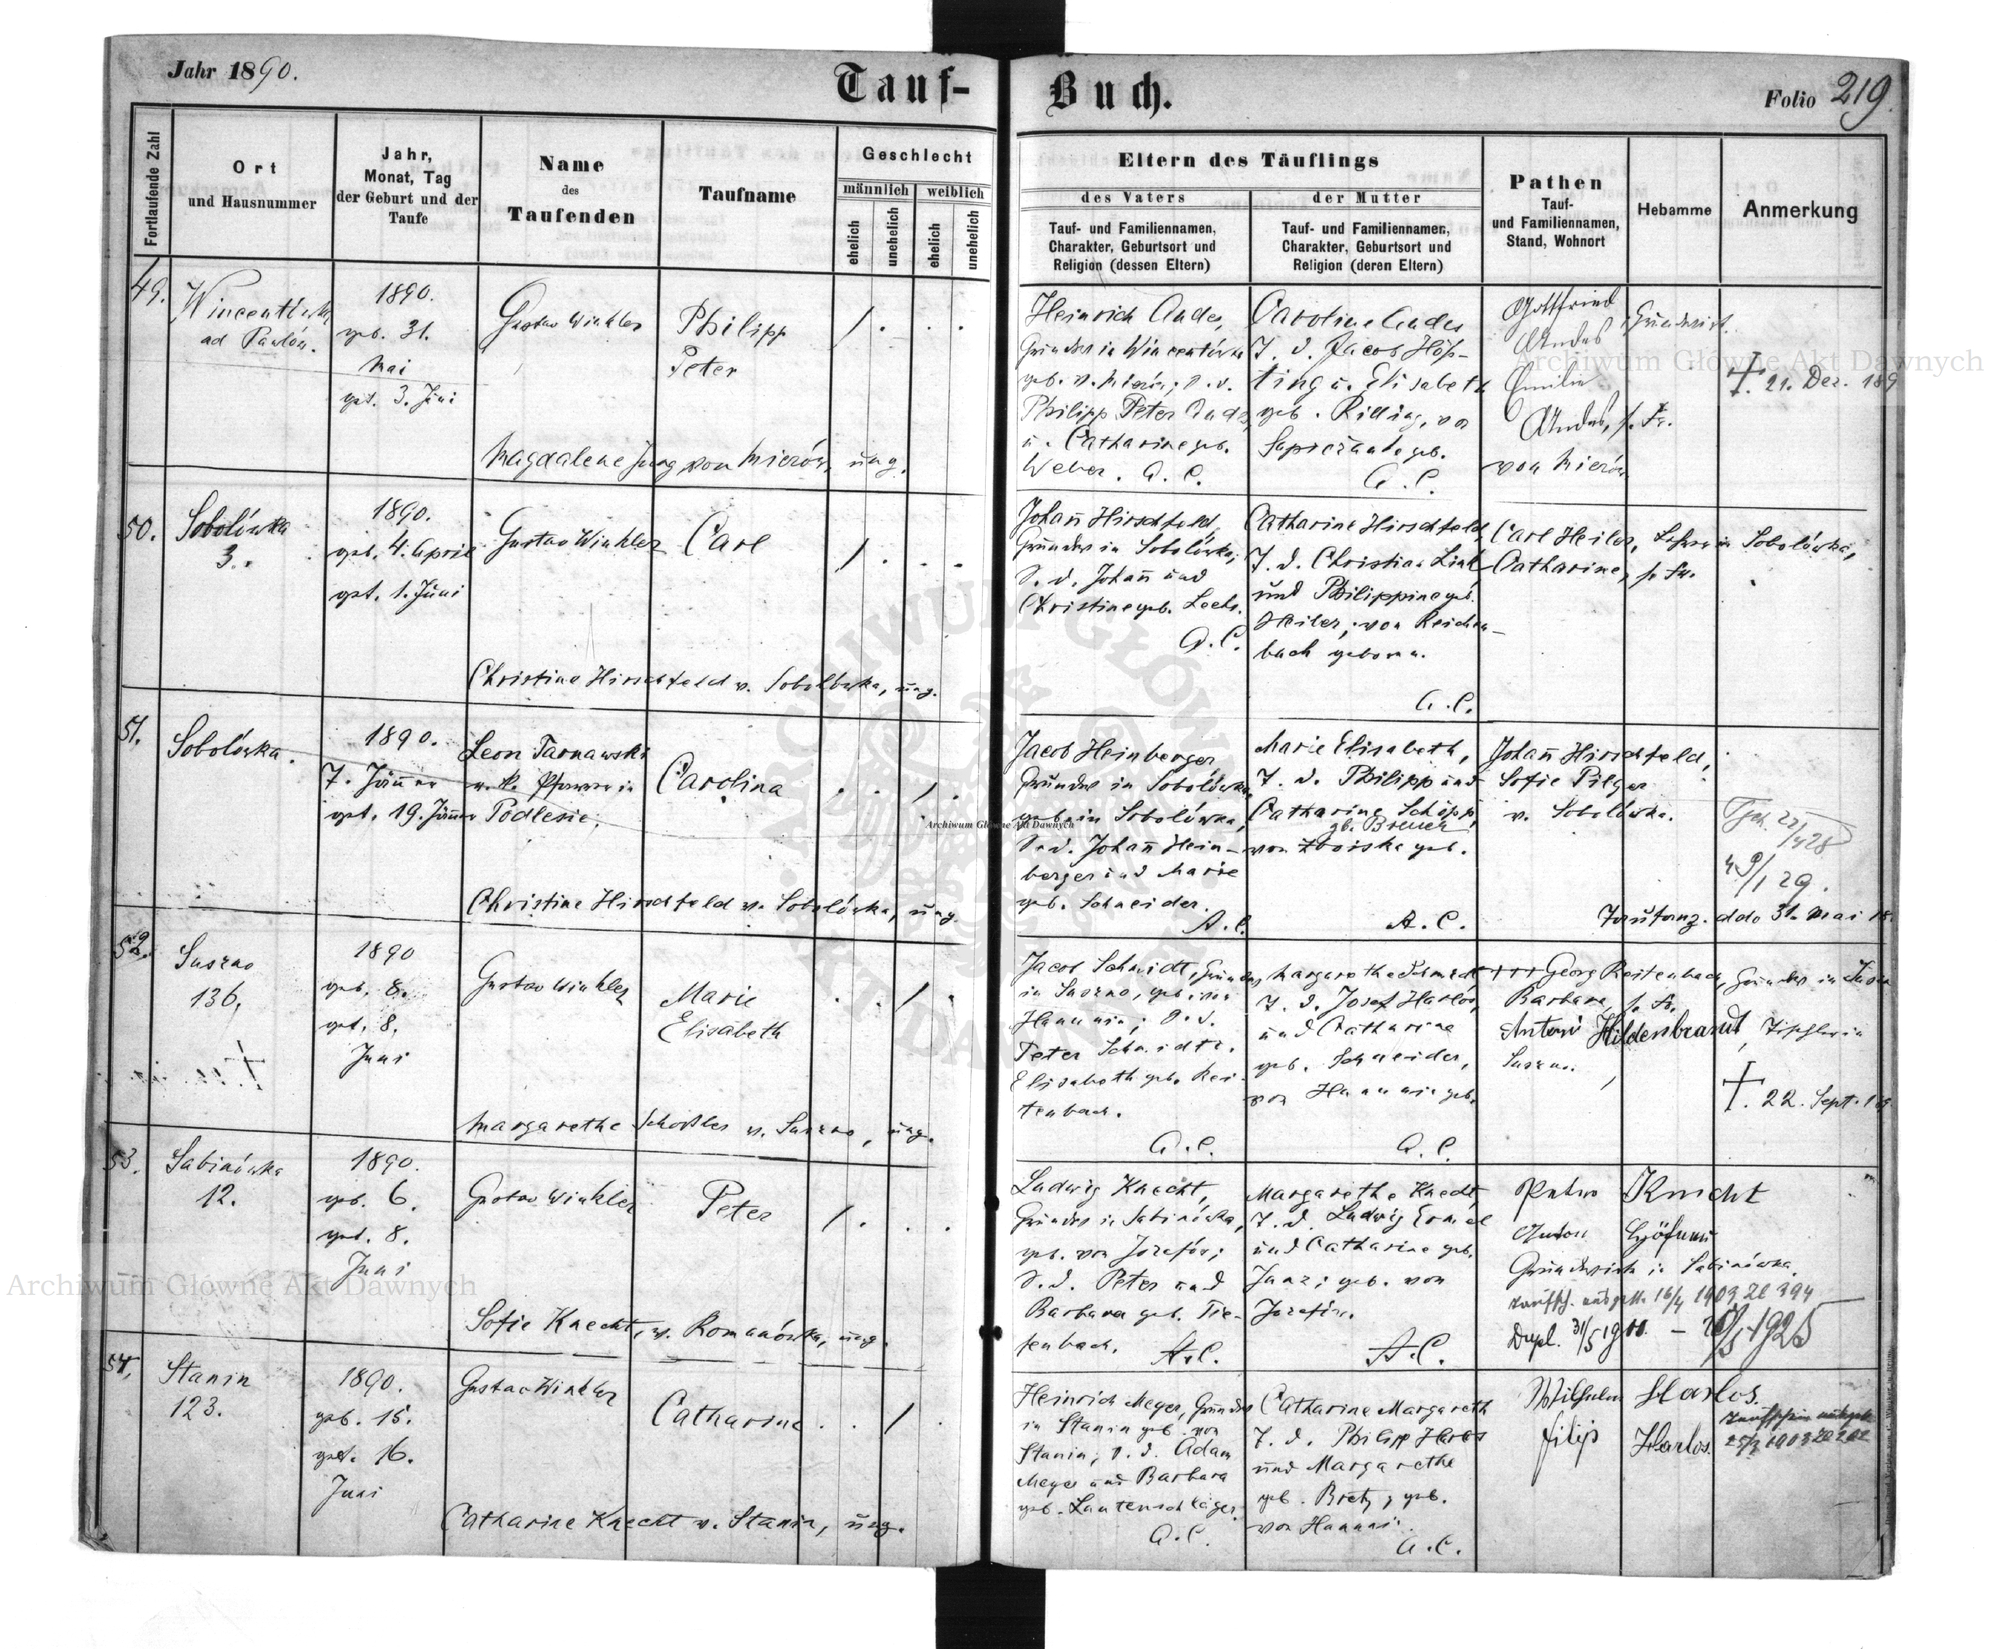 Jahr 1890.
Tauf-
Buch.
Folio 219.
Fortlaufende Zahl
Ort
und Hausnummer
Jahr,
Monat, Tag
der Geburt und der
Taufe
Name
des
Taufenden
Taufname
Geschlecht
männlich
weiblich
ehelich
unehelich
ehelich
unehelich
Eltern des Täuflings
des Vaters
der Mutter
Tauf- und Familiennamen,
Charakter, Geburtsort und
Religion (dessen Eltern)
Tauf- und Familiennamen,
Charakter, Geburtsort und
Religion (deren Eltern)
Pathen
Tauf-
und Familiennamen,
Stand, Wohnort
Hebamme
Anmerkung
49.
Wincentówka
ad Pawlów.
1890.
geb. 31.
Mai
get. 3. Juni
Gustav Winkler
Philipp
Peter
/ . . .
Magdalene Jung von Mierów, ung.
Heinrich Andes,
Grundw. in Wincentówka
geb. v. Mierów; S. d.
Philipp Peter Andes
u. Catharine geb.
Weber. A. C.
Caroline Andes
T. d. Jacob Höf-
ting u. Elisabeth
geb. Rilling, von
Sapieżanka geb.
A. C.
Gottfried
Andes, Grundwirt.
Emilie
Andes, s. Fr.
von Mierów
† 21. Dez. 189
50.
Sobolówka
3.
1890.
geb. 4. April
get. 1. Juni
Gustav Winkler
Carl
/ . . .
Christine Hirschfeld v. Sobolówka, ung.
Johann Hirschfeld,
Grundw. in Sobolówka;
S. d. Johann und
Christine geb. Lech.
A. C.
Catharine Hirschfeld,
T. d. Christian Link
und Philippine geb.
Heiler, von Reichen-
bach geboren.
A. C.
Carl Heiler, Lehrer in Sobolówka,
Catharine, s. Fr.
51.
Sobolówka.
1890.
7. Jänner
get. 19. Jänner
Leon Tarnawski
r. k. Pfarrer in
Podlesie.
Carolina
. . / .
Christine Hirschfeld v. Sobolówka, ung.
Jacob Heinberger
Grundw. in Sobolówka
geb. in Sobolówka,
S. d. Johann Hein-
berger und Marie
geb. Schneider.
A. C.
Marie Elisabeth,
T. d. Philipp und
Catharine Schöpp,
gb. Breuer
von Zboiska geb.
A. C.
Johann Hirschfeld,
Sofie Pilger
v. Sobolówka.
9/1 29.
ddo 31. Mai 18
52.
Suszno
136.
1890
geb. 8.
get. 8.
Juni
Gustav Winkler
Marie
Elisabeth
. . / .
Margarethe Schössler v. Suszno, ung.
Jacob Schmidt, Grundw.
in Suszno, geb. von
Hanunin; S. d.
Peter Schmidt u.
Elisabeth geb. Rei-
tenbach.
A. C.
Margarethe Schmidt
T. d. Josef Harlos,
und Catharine
geb. Schneider,
von Hanunin geb.
A. C.
+++ Georg Reitenbach, Grundw. in Suszno
Barbara, s. Fr.
Antoni Hildenbrandt, Tischler in
Suszno.
†. 22. Sept. 189
53.
Sabinówka
12.
1890.
geb. 6.
get. 8.
Juni
Gustav Winkler
Peter
/ . . .
Sofie Knecht, v. Romanówka, ung.
Ludwig Knecht,
Grundw. in Sabinówka,
geb. von Józefów;
S. d. Peter und
Barbara geb. Tie-
fenbach. A. C.
Margarethe Knecht,
T. d. Ludwig Ermel
und Catharine geb.
Janz; geb. von
Józefów.
A. C.
Peter Knecht
Anton
Grundwirte in Sabinówka.
Taufsch. ausgest. 16/4 1903 Zl 394
Dupl. 31/5 1911. 1925
54.
Stanin
123.
1890.
geb. 15.
get. 16.
Juni
Gustav Winkler
Catharine
. . / .
Catharine Knecht v. Stanin, ung.
Heinrich Meyer, Grundw.
in Stanin geb. von
Stanin; S. d. Adam
Meyer und Barbara
geb. Lautenschläger.
A. C.
Catharine Margareth
T. d. Philipp Harlos
und Margarethe
geb. Bretz; geb.
von Hanunin.
A. C.
Wilhelm Harlos.
Filip Harlos.
Taufschein ausgest.
Archiwum Główne Akt Dawnych
Archiwum Główne Akt Dawnych
Archiwum Główne Akt Dawnych
ARCHIWUM GŁÓWNE AKT DAWNYCH